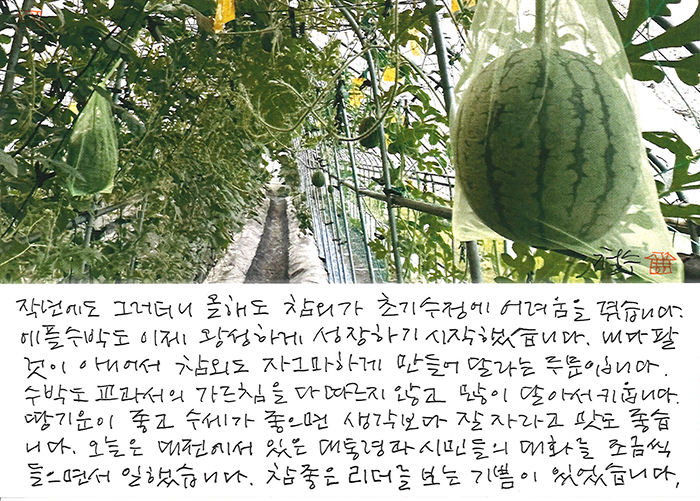 철수
작년에도 그러더니 올해도 참외가 초기수정에 어려움을 겪습니다.
애플수박도 이제 왕성하게 성장하기 시작했습니다. 내다 팔
것이 아니어서 참외도 자그마하게 만들어 달라는 주문입니다.
수박도 교과서의 가르침을 다 따르지 않고 많이 달아서 키웁니다.
땅기운이 좋고 수세가 좋으면 생각보다 잘 자라고 맛도 좋습
니다. 오늘은 대전에서 있은 대통령과 시민들의 대화를 조금씩
들으면서 일했습니다. 참 좋은 리더를 보는 기쁨이 있었습니다.